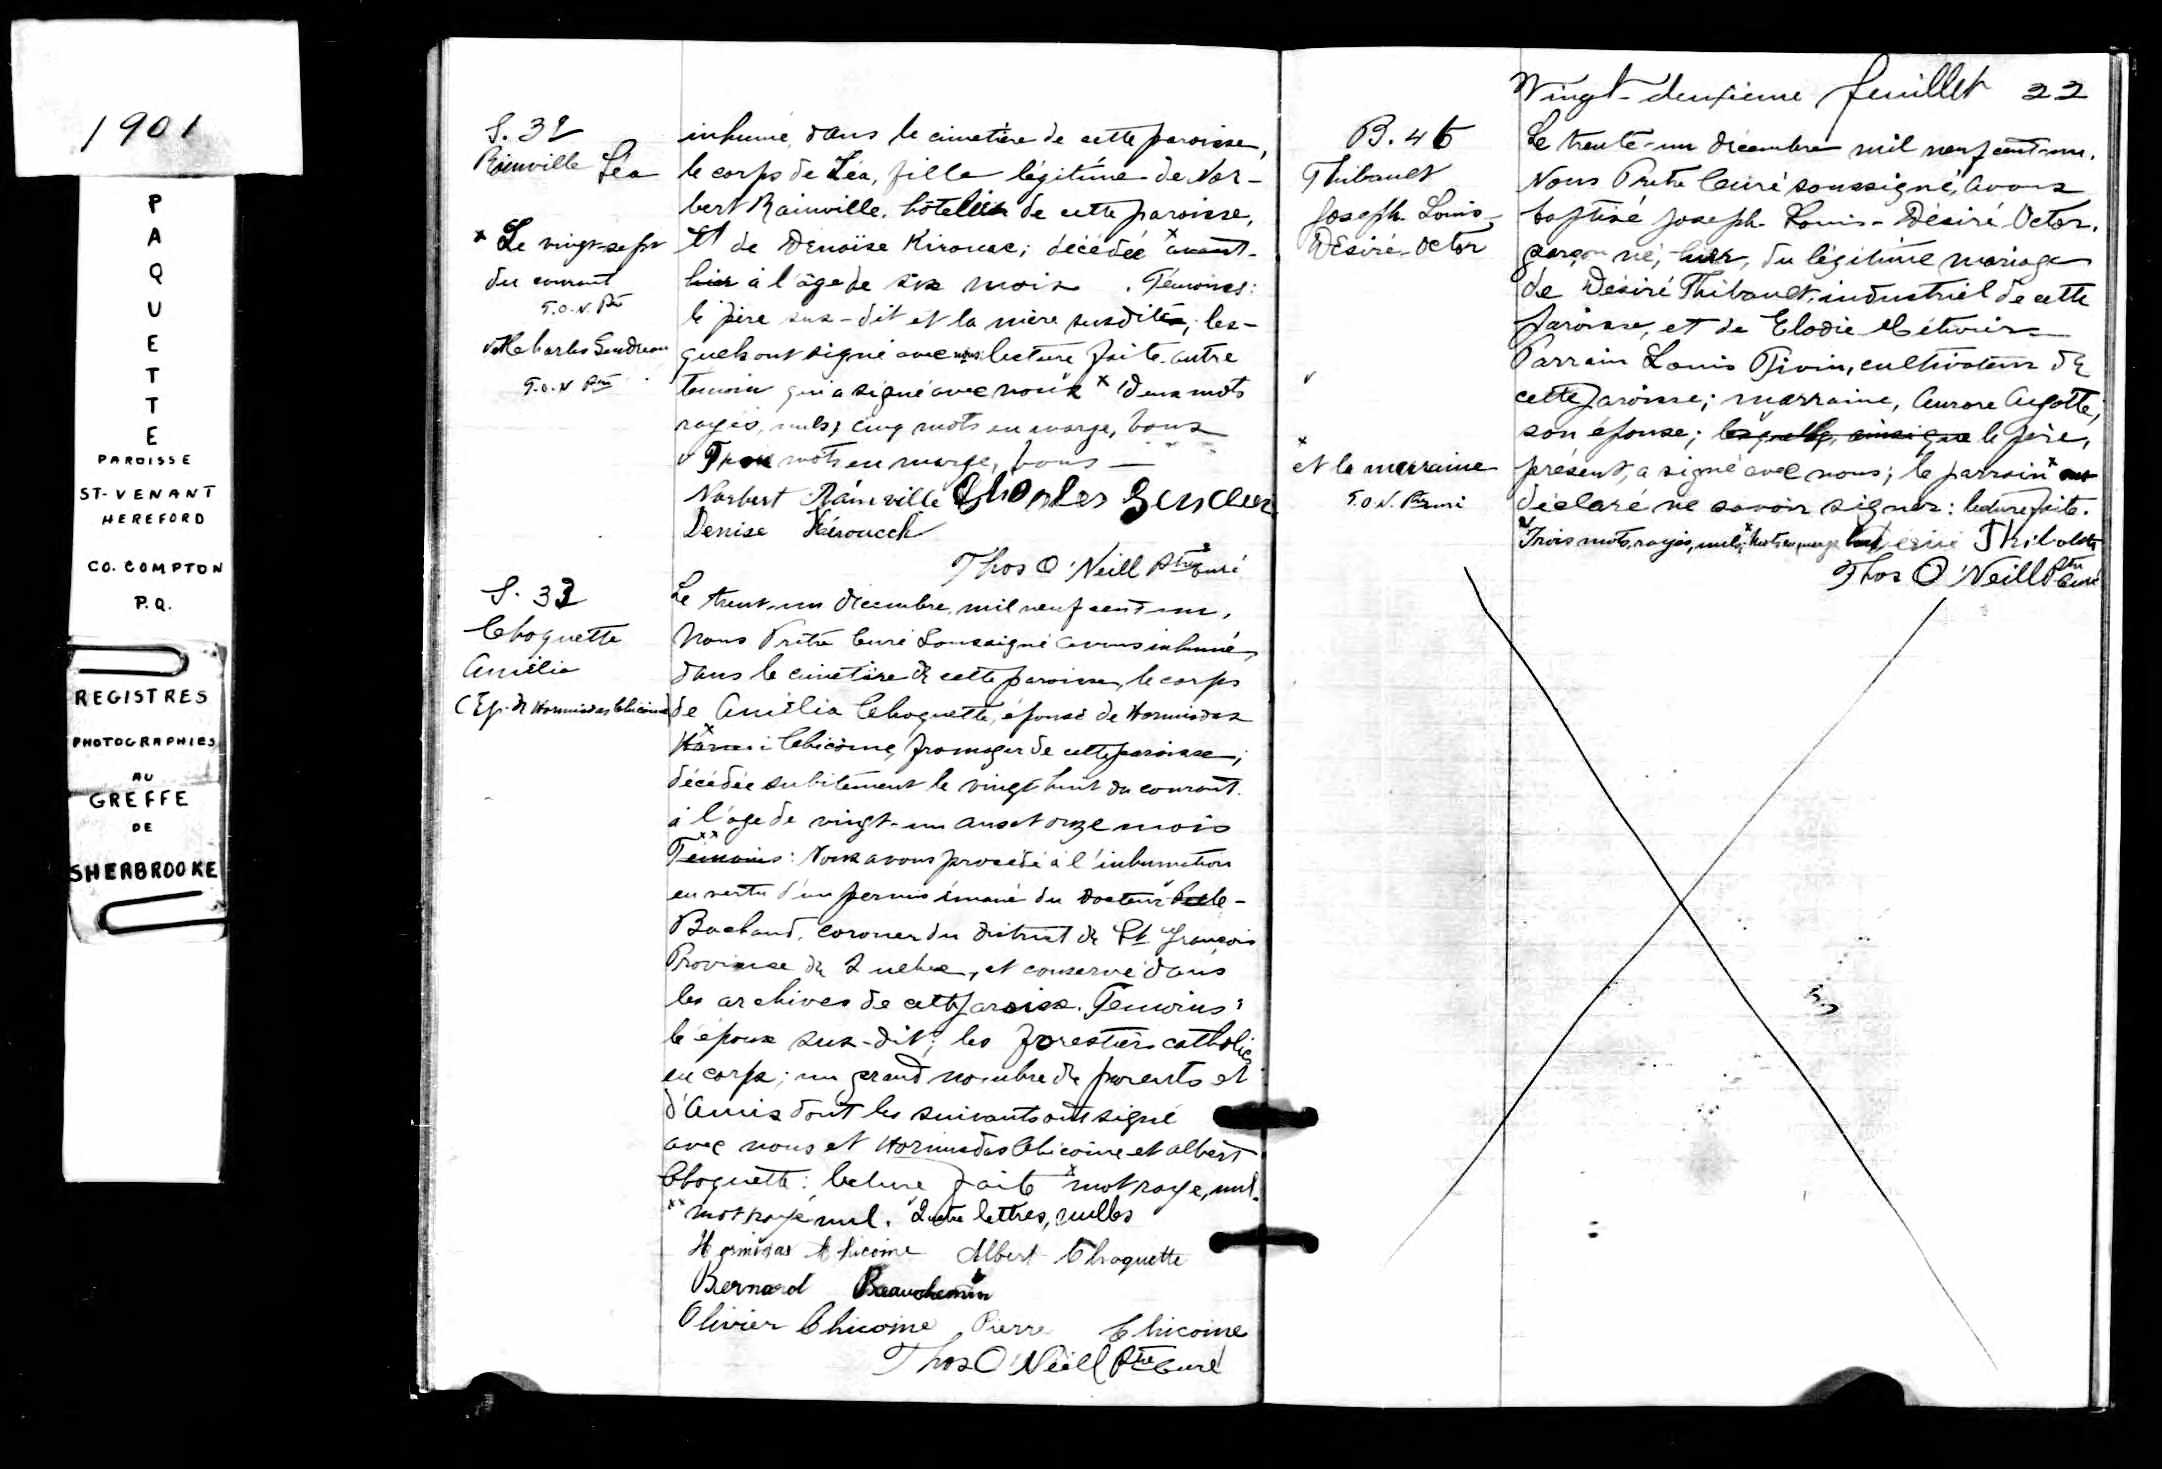 1901
P
A
Q
U
E
T
T
E
PAROISSE
ST-VENANT
HEREFORD
CO. COMPTON
P.Q.
REGISTRES
PHOTOGRAPHIES
AU
GREFFE
DE
SHERBROOKE
S. 32
Rainville Léa
x Le vingt-sept
du courant
T.O.N. Ptre
v Charles Gendreau
T.O.N Ptre
inhumé, dans le cimetière de cette paroisse,
le corps de Léa, fille légitime de Nor-
bert Rainville, hôtelier de cette paroisse,
Et de Denoïse Kirouac; décédée x avant-
hier à l'âge de six mois. Témoins:
le père sus-dit et la mère susdite, les-
quels ont signé avec nous: lecture faite. autre
temoin qui a signé avec nous x Deux mots
rayés, nuls; cinq mots en marge, bons
v Trois mots en marge, bons —
Norbert Rainville Charles Gendreau
Denise Kéroucch
Thos O'Neill Ptre Curé
S. 33
Choquette
Amélia
(Ép. de Hormisdas Chicoine)
Le trent-un décembre, mil neuf cent-un,
Nous Prêtre Curé Soussigné avons inhumé,
dans le cimetière de cette paroisse, le corps
de Amélia Choquette, épouse de Hormisdas
x Chicoine, fromager de cette paroisse;
décédée subitement le vingt huit du courant.
à l'âge de vingt-un ans et onze mois
xx Témoins: Nous avons procédé à l'inhumation
en vertu d'un permis émané du Docteur
Bachand, coroner du district de St François
Province de Québec, et conservé dans
les archives de cette paroisse. Temoins:
le époux sus-dit; les forestiers catholics
en corps; un grand nombre de parents et
d'Amis dont les suivants ont signé
avec nous et Hormisdas Chicoine et Albert
Choquette: lecture faite x mot rayé, nul.
xx mot rayé nul. Quatre lettres, nulles
Hormisdas Chicoine Albert Choquette
Bernard Beauchemin
Olivier Chicoine Pierre Chicoine
Thos O'Neill Ptre Curé
Vingt-deuxieme feuillet 22
B. 46
Thibault
Joseph-Louis-
Désiré-Octor
v
x
et la marraine
T.O.N. Ptre Curé
Le trente-un décembre mil neuf cent-un.
Nous Prêtre Curé soussigné, avons
baptisé Joseph-Louis-Désiré Octor,
garçon né, hier, du légitime mariage
de Désiré Thibault, industriel de cette
paroisse, et de Elodie Métivier
Parrain Louis Pivin, cultivateur de
cette paroisse; marraine, Aurore Cayotte,
son épouse; lesquels, ainsi que le père,
présent, a signé avec nous; le parrain x ont
déclaré ne savoir signer: lecture faite.
Trois mots, rayés, nuls;
Thos O'Neill Ptre Curé